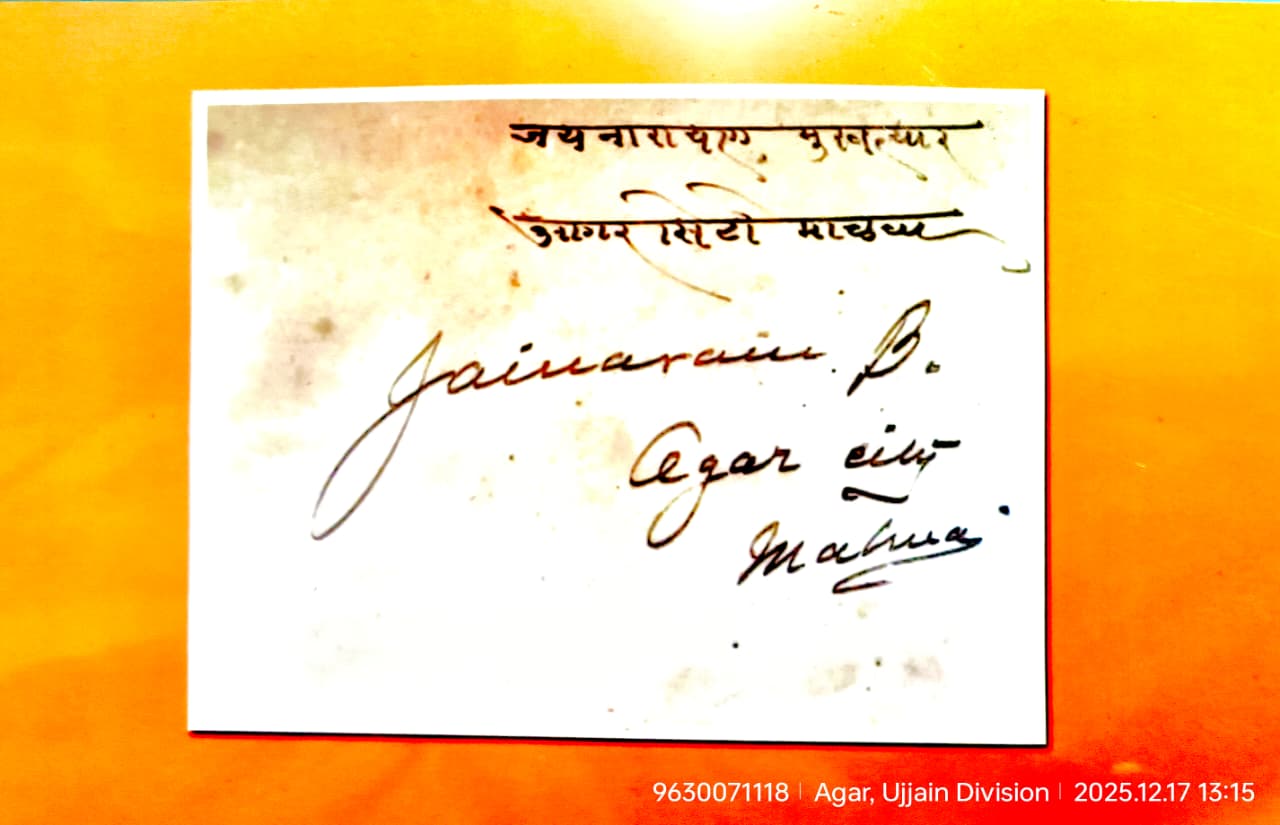 जयनारायण मुखत्यार
आगर सिटी मालवा
Jainarain B.
Agar city
Malwa
9630071118 | Agar, Ujjain Division | 2025.12.17 13:15